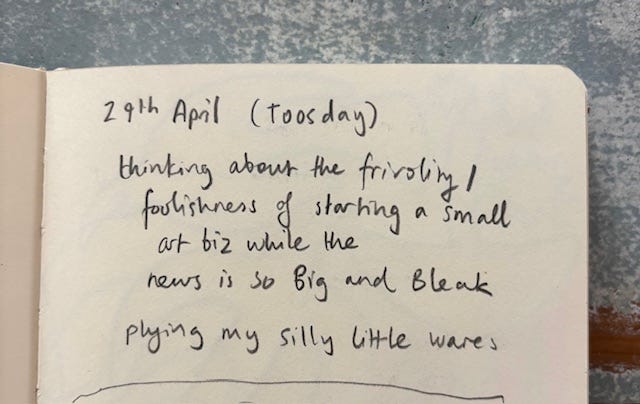 29th April (Toosday)
thinking about the frivolity/
foolishness of starting a small
art biz while the
news is so Big and Bleak
plying my silly little wares